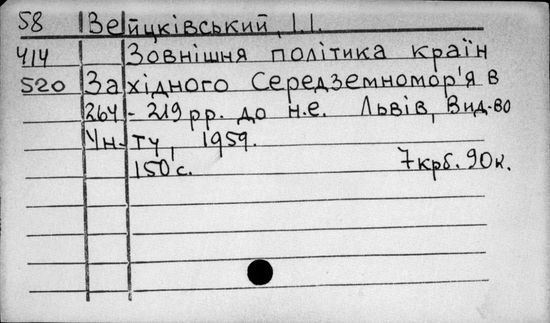 58 Вейцківський, І.І.
414 Зовнішня політика країн
520 Західного Середземномор'я в
264-219 рр. до н.е. Львів, Вид-во
Ун-ту, 1959.
150 с. 7 крб. 90 к.